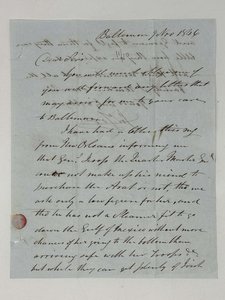 Baltimore 9 Nov 1846
Dear Sir
You will much oblige me if
you will forward any letters that
may arrive for me to your care
to Baltimore.
I have had a letter this
from New Orleans informing me
that Genl. Jesup the Quarter Master Genl
not make up his mind to
purchase the boat or not, tho we
ask only a low figure for her, and
tho he has not a Steamer fit to go
down the Gulf of Mexico without more
chances of her going to the bottom than
arriving safe with her Troops &c
but while they can get plenty of Irish